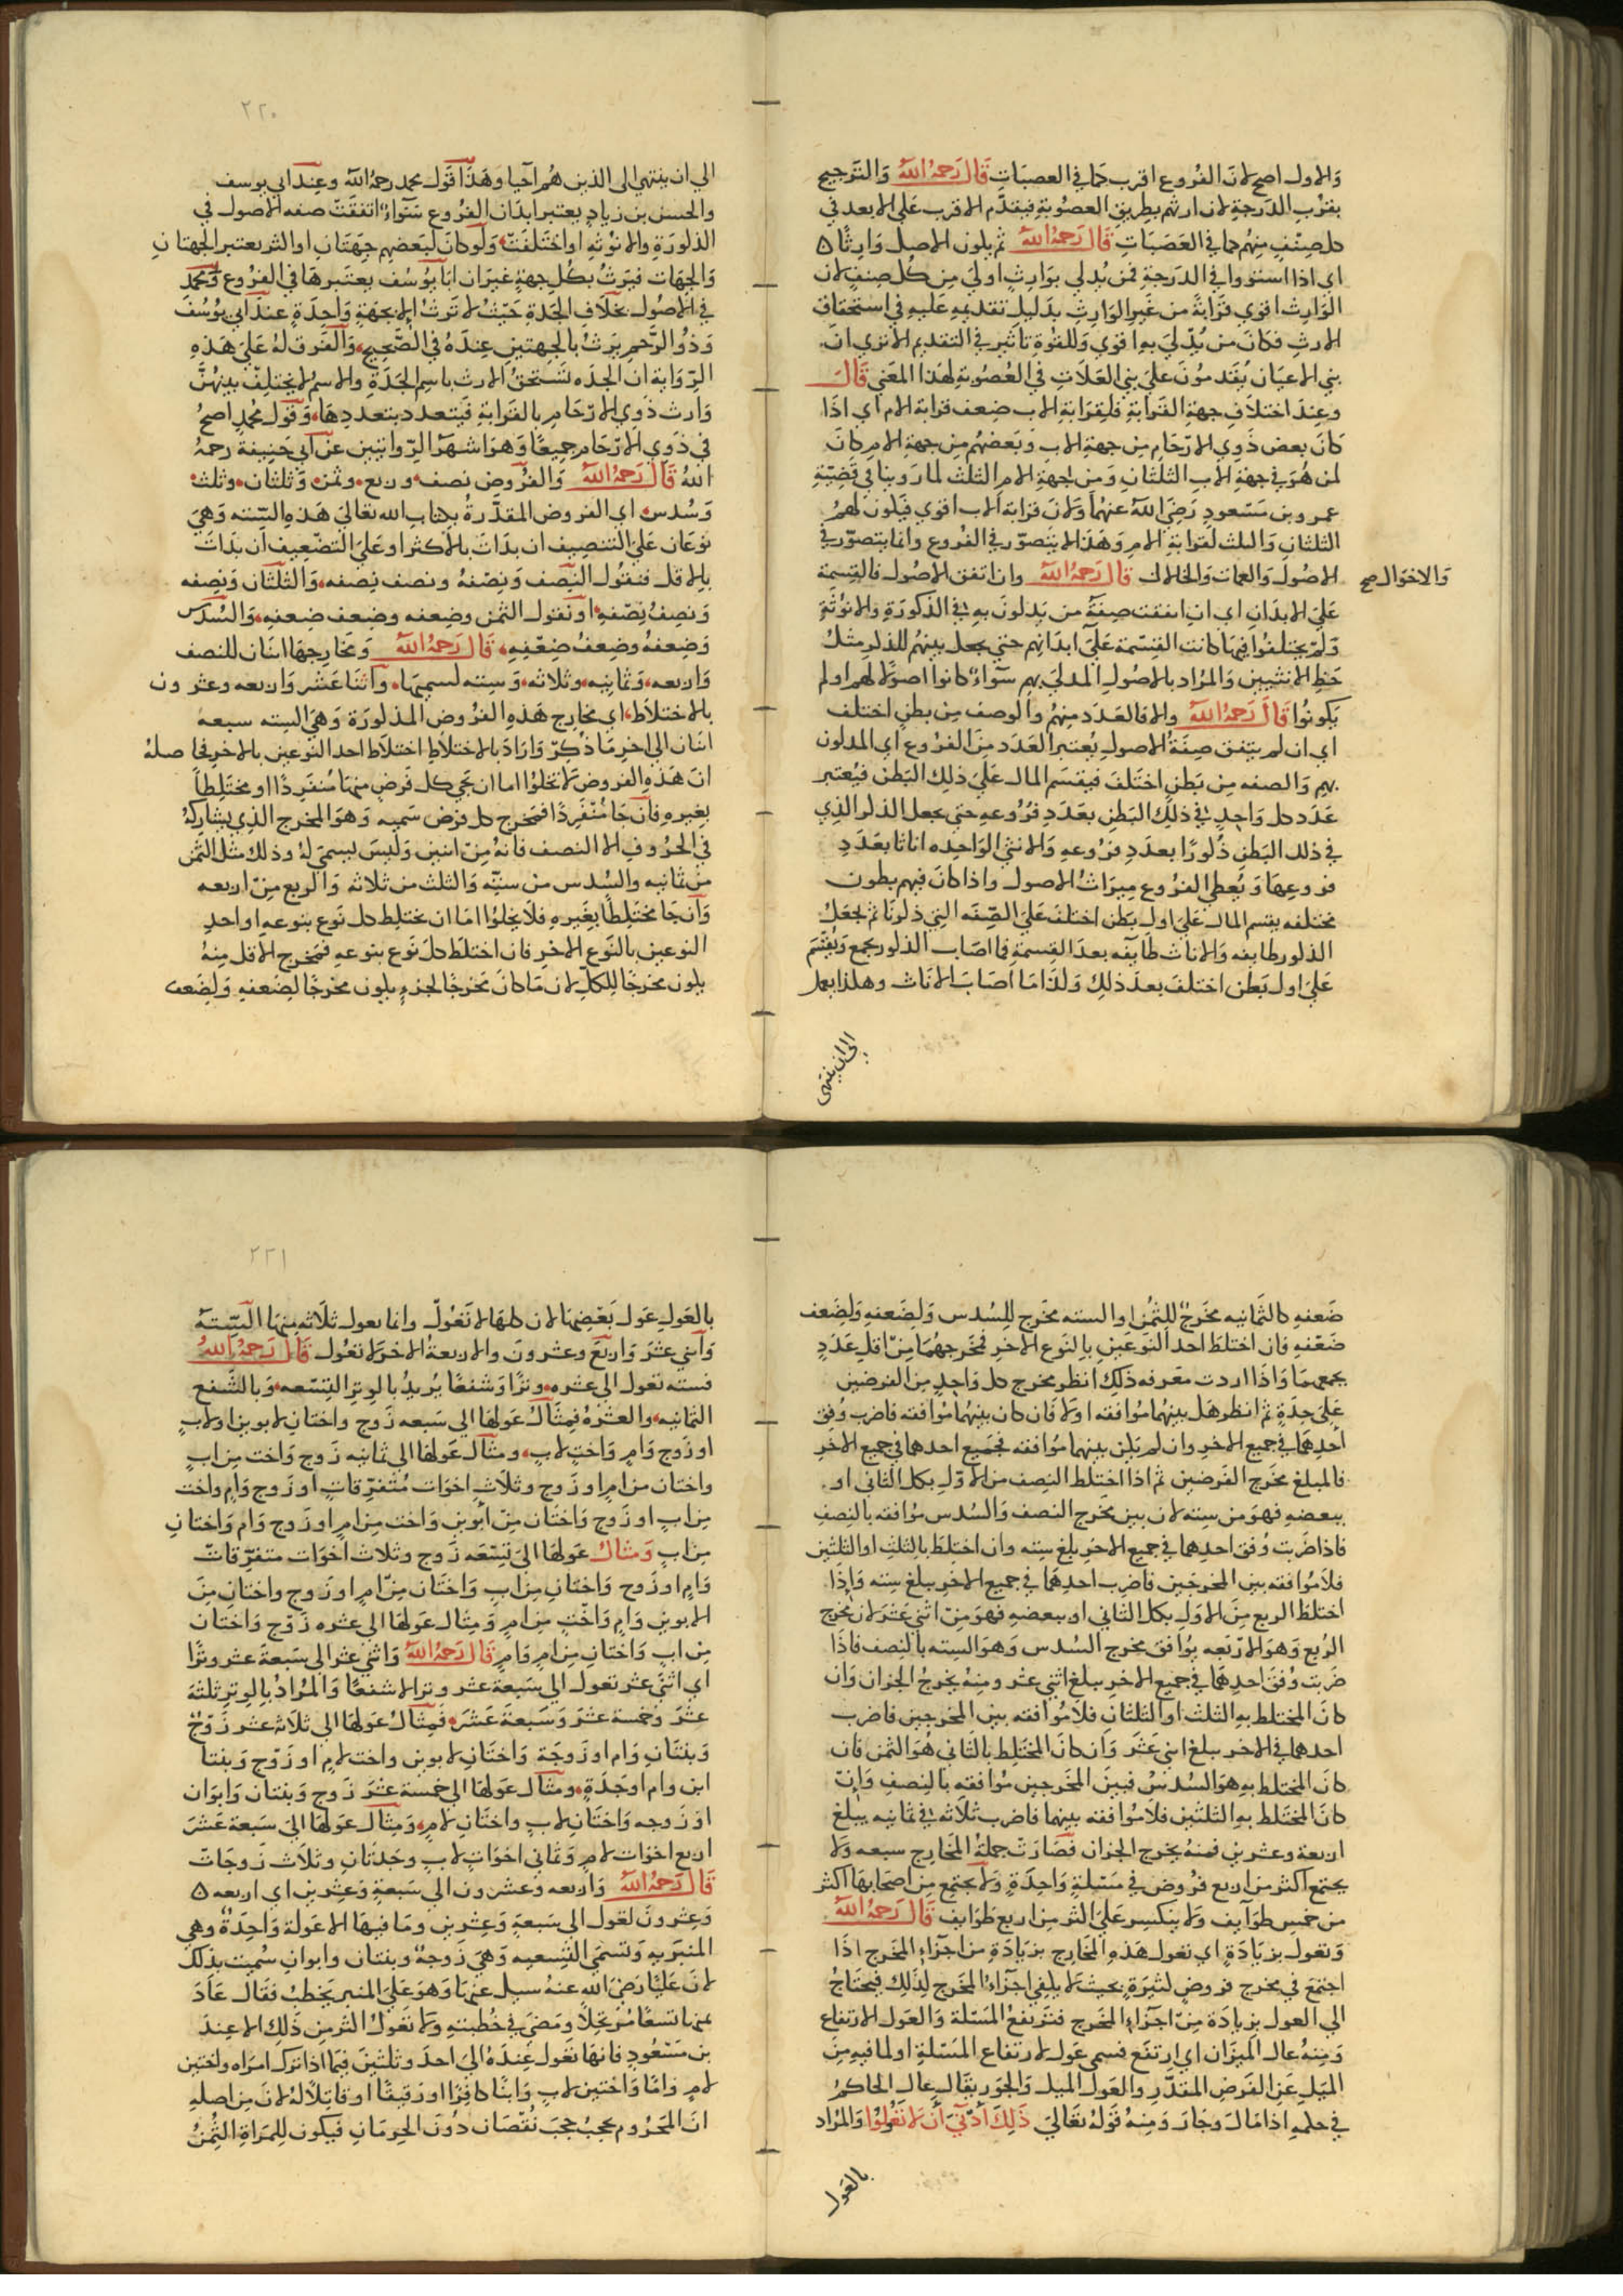 والاول اصح لان الفروع اقرب كما في العصبات قال رحمه الله والترجيح
بقرب الدرجة لان ارثهم بطريق العصوبة فيقدم الاقرب على الابعد في
كل صنف منهم كما في العصبات قال رحمه الله ثم بكون الاصل وارثا ه
اي اذا استووا في الدرجة فمن يدلي بوارث اولى من كل صنف لان
الوارث اقوي قرابة من غير الوارث بدليل تقديمه عليه في استحقاق
الارث فكان من يدلي به اقوي وللقوة تاثير في التقديم الا تري ان
بني الاعيان يقدمون على بني العلات في العصوبة لهذا المعني قال
وعند اختلاف جهة القرابة فلقرابة الاب ضعف قرابة الام اي اذا
كان بعض ذوي الارحام من جهة الاب وبعضهم من جهة الام كان
لمن هو في جهة الاب الثلثان ومن جهة الام الثلث لما روينا في قضية
عمر وبن مسعود رضي الله عنهما ولان قرابة الاب اقوي فيكون لهم
الثلثان والثلث لقرابة الام وهذا لا يتصور في الفروع وانما يتصور في
الاصول والعمات والخالات قال رحمه الله وان اتفق الاصول فالقسمة
والاخوال صح
على الابدان اي ان اتفقت صفة من يدلون به في الذكورة والانوثة
ولم يختلفوا فيها كانت القسمة على ابدانهم حتي يجعل بينهم للذكر مثل
حظ الانثيين والمراد بالاصول المدلي بهم سواء كانوا اصولا لهم او لم
يكونوا قال رحمه الله والا فالعدد منهم والوصف من بطن اختلف
اي ان لم يتفق صفة الاصول يعتبر العدد من الفروع اي المدلون
بهم والصفه من بطن اختلف فيقسم المال على ذلك البطن فيعتبر
عدد كل واحد في ذلك البطن بعدد فروعه حتى يجعل الذكر الذي
في ذلك البطن ذكورا بعدد فروعه والانثي الواحده اناثا بعدد
فروعها ويعطي الفروع ميراث الاصول واذا كان فيهم بطون
مختلفه يقسم المال على اول بطن اختلف على الصفه التي ذكرنا ثم تجعل
الذكور طايفه والاناث طايفه بعد القسمة فما اصاب الذكور يجمع ويقسم
على اول بطن اختلف بعد ذلك وكذا ما اصاب الاناث وهكذا يعمل
الى ان ينتهى
٢٢٠
الي ان ينتهي الى الذين هم احيا وهذا قول محمد رحمه الله وعند ابي يوسف
والحسن بن زياد يعتبر ابدان الفروع سواء اتفقت صفه الاصول في
الذكورة والانوثة او اختلفت ولو كان لبعضهم جهتان او اكثر يعتبر الجهتان
والجهات فيرث بكل جهة غير ان ابا يوسف يعتبرها في الفروع ومحمد
في الاصول بخلاف الجدة حيث لا ترث الا بجهة واحدة عند ابي يوسف
وذو الرحم يرث بالجهتين عنده في الصحيح والفرق له على هذه
الرواية ان الجده تستحق الارث باسم الجدة والاسم لا يختلف بينهن
وارث ذوي الارحام بالقرابة فيتعدد بتعددها وقول محمد اصح
في ذوي الارحام جميعا وهو اشهر الروايتين عن ابي حنيفة رحمه
الله قال رحمه الله والفروض نصف وربع وثمن وثلثان وثلث
وسدس اي الفروض المقدرة بكتاب الله تعالى هذه السته وهي
نوعان على التنصيف ان بدات بالاكثر او على التضعيف ان بدات
بالاقل فنقول النصف ونصفه ونصف نصفه والثلثان ونصفه
ونصف نصفه او نقول الثمن وضعفه وضعف ضعفه والسدس
وضعفه وضعف ضعفه قال رحمه الله ومخارجها اثنان للنصف
واربعه وثمانيه وثلاثه وسته لسميها واثنا عشر واربعه وعشرون
بالاختلاط اي مخارج هذه الفروض المذكورة وهي السته سبعه
اثنان الى اخر ما ذكر واراد بالاختلاط اختلاط احد النوعين بالاخر فحاصله
ان هذه الفروض لا تخلوا اما ان يجي كل فرض منها منفردا او مختلطا
بغيره فان جا منفردا فمخرج كل فرض سميه وهو المخرج الذي يشاركه
في الحروف الا النصف فانه من اثنين وليس بسمي له وذلك مثل الثمن
من ثمانيه والسدس من ستة والثلث من ثلاثه والربع من اربعه
وان جا مختلطا بغيره فلا يخلوا اما ان يختلط كل نوع بنوعه او احد
النوعين بالنوع الاخر فان اختلط كل نوع بنوعه فمخرج الاقل منه
يكون مخرجا للكل لان ما كان مخرجا لجزء يكون مخرجا لضعفه ولضعف
ضعفه كالثمانيه مخرج للثمن او السته مخرج للسدس ولضعفه ولضعف
ضعفه فان اختلط احد النوعين بالنوع الاخر فمخرجهما من اقل عدد
يجمعهما واذا اردت معرفه ذلك انظر مخرج كل واحد من الفرضين
على حدة ثم انظر هل بينهما موافقه او لا فان كان بينهما موافقه فاضرب وفق
احدهما في جميع الاخر وان لم يكن بينهما موافقه فجميع احدهما في جميع الاخر
فالمبلغ مخرج الفرضين ثم اذا اختلط النصف من الاول بكل الثاني او
ببعضه فهو من سته لان بين مخرج النصف والسدس موافقه بالنصف
فاذا ضربت وفق احدهما في جميع الاخر بلغ سته وان اختلط بالثلث او الثلثين
فلا موافقه بين المخرجين فاضرب احدهما في جميع الاخر يبلغ سته واذا
اختلط الربع من الاول بكل الثاني او ببعضه فهو من اثني عشر لان مخرج
الربع وهو الاربعه يوافق مخرج السدس وهو السته بالنصف فاذا
ضربت وفق احدهما في جميع الاخر يبلغ اثني عشر ومنه يخرج الجزان وان
كان المختلط به الثلث او الثلثان فلا موافقه بين المخرجين فاضرب
احدهما في الاخر يبلغ اثني عشر وان كان المختلط بالثاني هو الثمن فان
كان المختلط به هو السدس فبين المخرجين موافقه بالنصف وان
كان المختلط به الثلثين فلا موافقه بينهما فاضرب ثلاثه في ثمانيه يبلغ
اربعة وعشرين فمنه يخرج الجزان فصارت جملة المخارج سبعه ولا
يجتمع اكثر من اربع فروض في مسئلة واحدة ولا يجتمع من اصحابها اكثر
من خمس طوايف ولا ينكسر على اكثر من اربع طوايف قال رحمه الله
وتعول بزيادة اي تعول هذه المخارج بزيادة من اجزاء المخرج اذا
اجتمع في مخرج فروض كثيرة بحيث لا يكفي اجزاء المخرج لذلك فيحتاج
الي العول بزيادة من اجزاء المخرج فترتفع المسئلة والعول الارتفاع
ومنه عال الميزان اي ارتفع فسمي عول لارتفاع المسئلة او لما فيه من
الميل عن الفرض المقدر والعول الميل والجور يقال عال الحاكم
في حكمه اذا مال وجار ومنه قوله تعالى ذلك ادني ان لا تعولوا والمراد
بالعول
٢٢١
بالعول عول بعضها لان كلها لا تعول وانما يعول ثلاثه منها الستة
واثني عشر واربع وعشرون والاربعة الاخر لا تعول قال رحمه الله
فسته تعول الي عشره وترا وشفعا يريد بالوتر التسعه وبالشفع
الثمانيه والعشرة فمثال عولها الي سبعه زوج واختان لابوين او لاب
او زوج وام واخت لاب ومثال عولها الي ثمانيه زوج واخت من اب
واختان من ام او زوج وثلاث اخوات متفرقات او زوج وام واخت
من اب او زوج واختان من ابوين واخت من ام او زوج وام واختان
من اب ومثال عولها الى تسعه زوج وثلاث اخوات متفرقات
وام او زوج واختان من اب واختان من ام او زوج واختان من
الابوين وام واخت من ام ومثال عولها الي عشره زوج واختان
من اب واختان من ام وام قال رحمه الله واثني عشر الى سبعة عشر وترا
اي اثني عشر تعول الي سبعة عشر وترا لا شفعا والمراد بالوتر ثلثة
عشر وخمسة عشر وسبعة عشر فمثال عولها الى ثلاثه عشر زوج
وبنتان وام او زوجة واختان لابوين واخت لام او زوج وبنتا
ابن وام او جدة ومثال عولها الى خمسة عشر زوج وبنتان وابوان
او زوجه واختان لاب واختان لام ومثال عولها الى سبعة عشر
اربع اخوات لام وثماني اخوات لاب وجدتان وثلاث زوجات
قال رحمه الله واربعه وعشرون الي سبعة وعشرين اي اربعه ه
وعشرون تعول الى سبعة وعشرين وما فيها الا عولة واحدة وهي
المنبريه وتسمى التسعيه وهي زوجة وبنتان وابوان سميت بذلك
لان عليا رضي الله عنه سيل عنها وهو على المنبر يخطب فقال عاد
ثمنها تسعا مرتجلا ومضى في خطبته ولا تعول اكثر من ذلك الا عند
بن مسعود فانها تعول عنده الى احد وثلثين فيما اذا ترك امراه واختين
لام واما واختين لاب وابنا كافرا او رقيقا او قاتلا له لان من اصله
ان المحروم يحجب حجب نقصان دون الحرمان فيكون للمراة الثمن